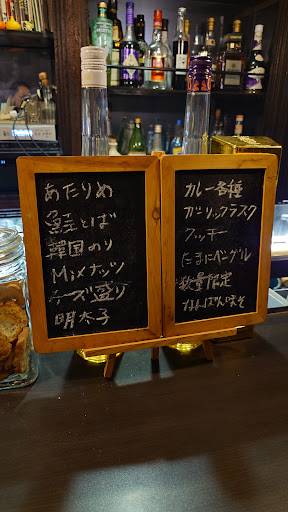 あたりめ
鮭とば
韓国のり
Mixナッツ
チーズ盛り
明太子
カレー各種
ガーリックラスク
クッキー
たまにベーグル
数量限定
なんばん味そ